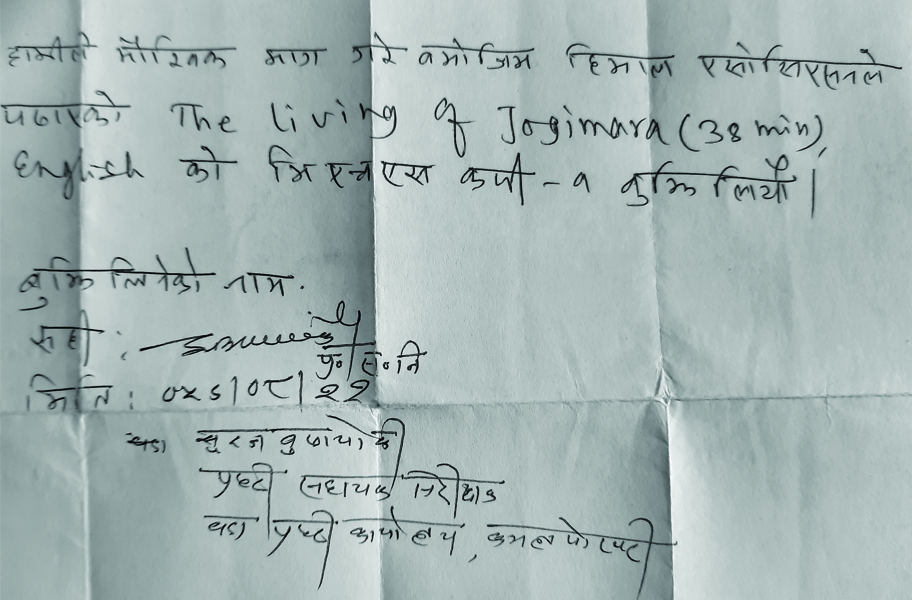 हामीले मौखिक माग गरे बमोजिम हिमाल एसोसिएसनले
पठाएको The living of Jogimara (38 min),
English को भिएचएस कपी - १ बुझि लियौं।
बुझि लिनेको नाम.
सही :
प्र॰ स॰ नि
मिति : ०५८/०८/२२
सुरज कुमार
प्रहरी सहायक निरीक्षक
वडा प्रहरी कार्यालय, कमलपोखरी